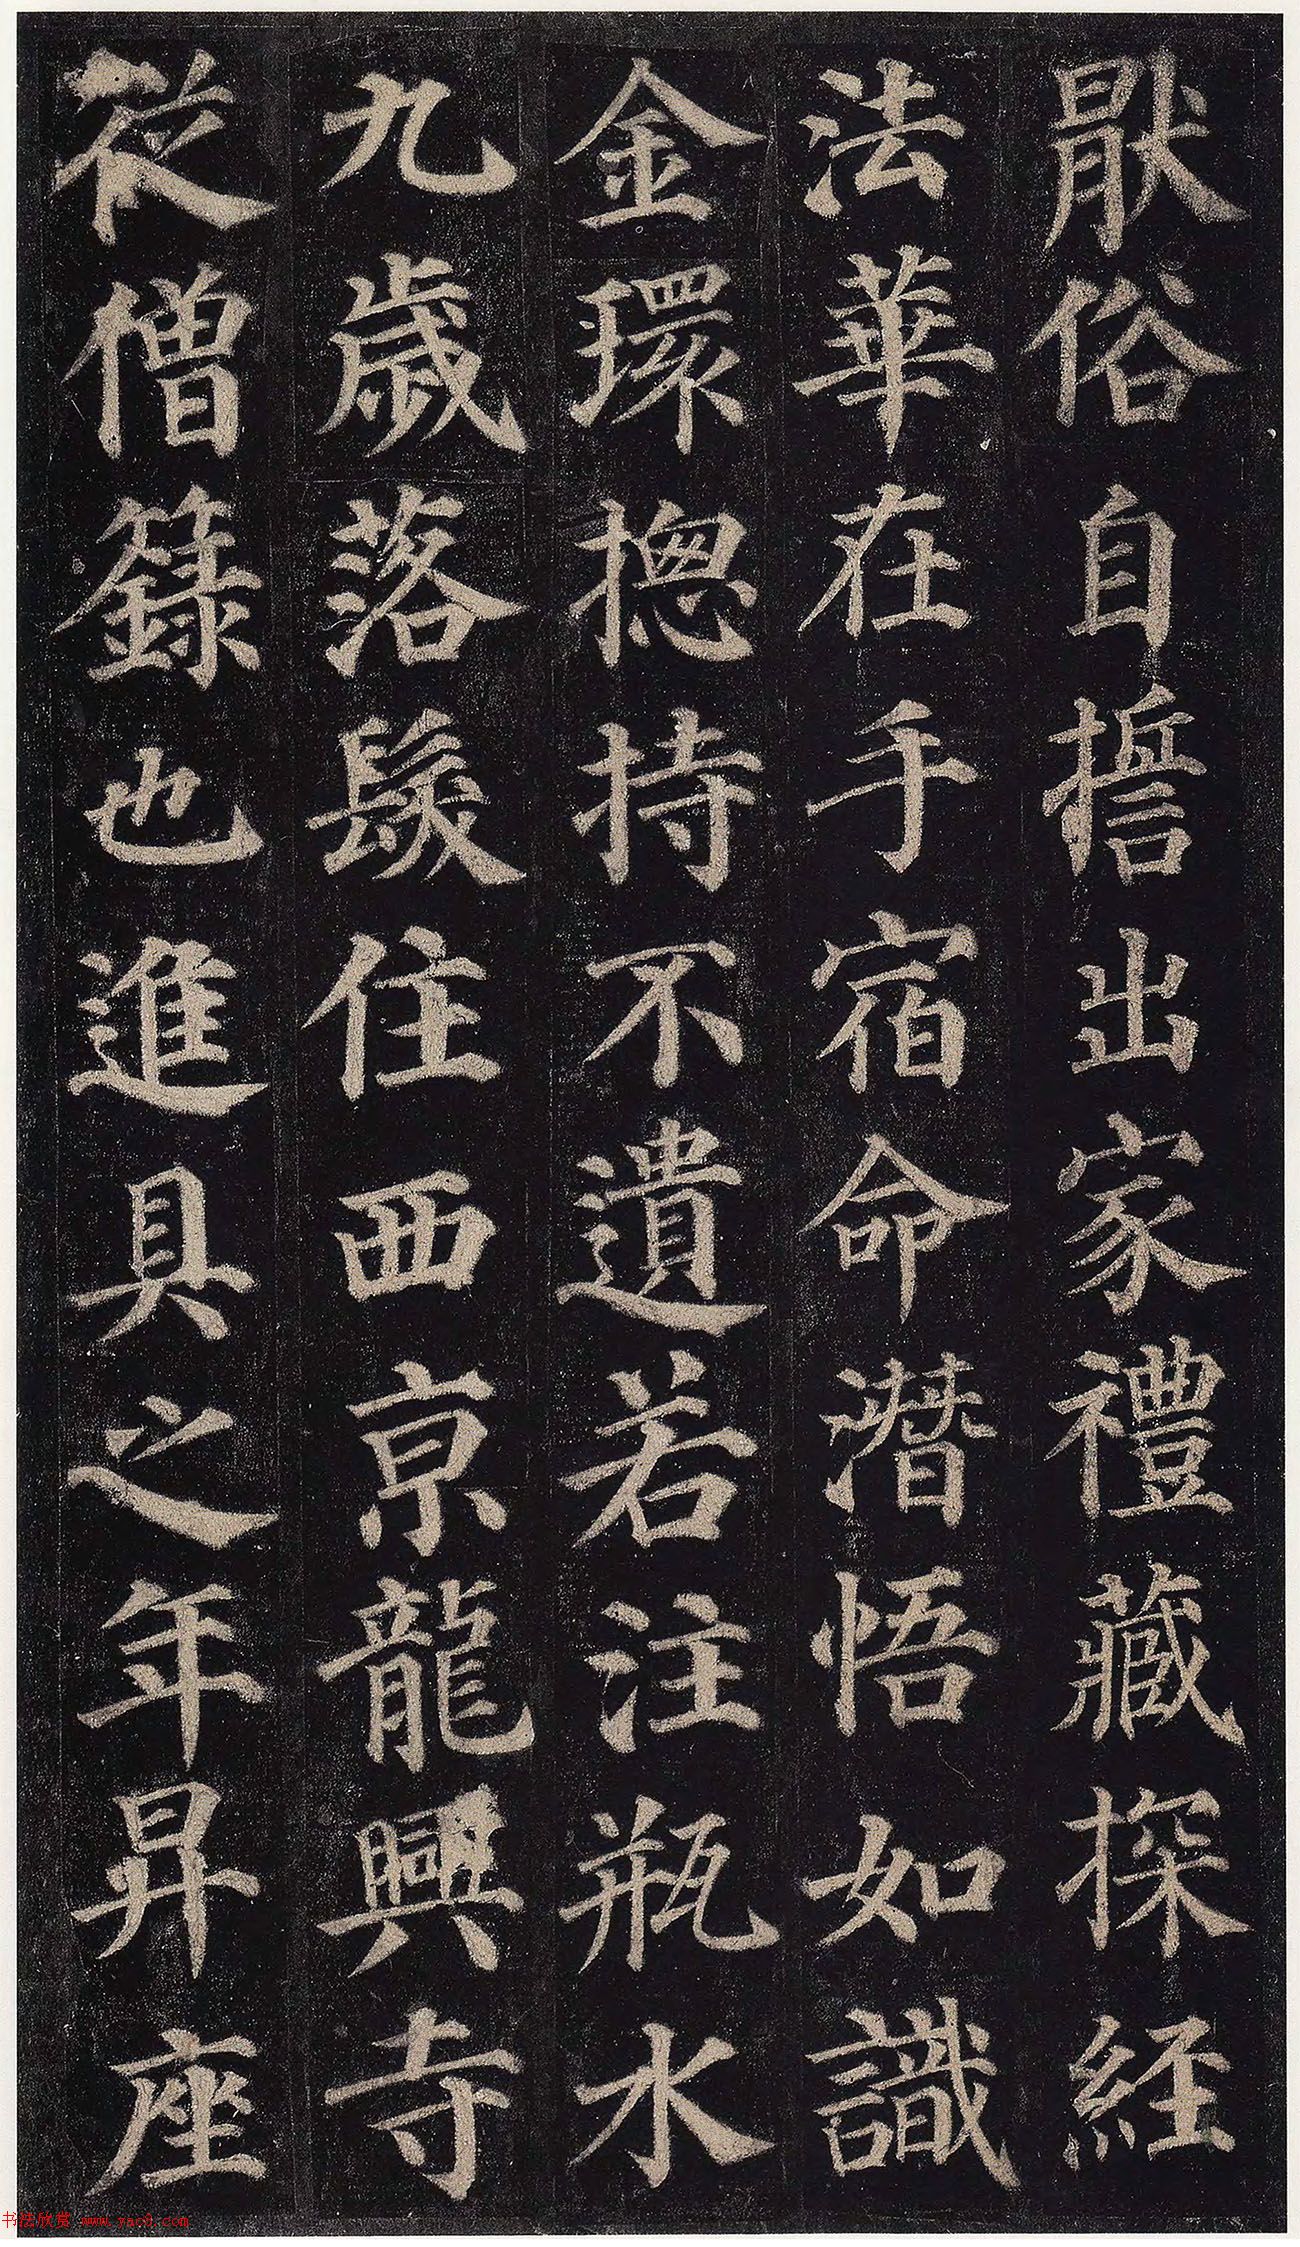 猒俗自誓出家禮藏探経
法華在手宿命潛悟如識
金環揔持不遺若注瓶水
九歲落髮住西京龍興寺
從僧籙也進具之年昇座
书法欣赏 www.yac8.com